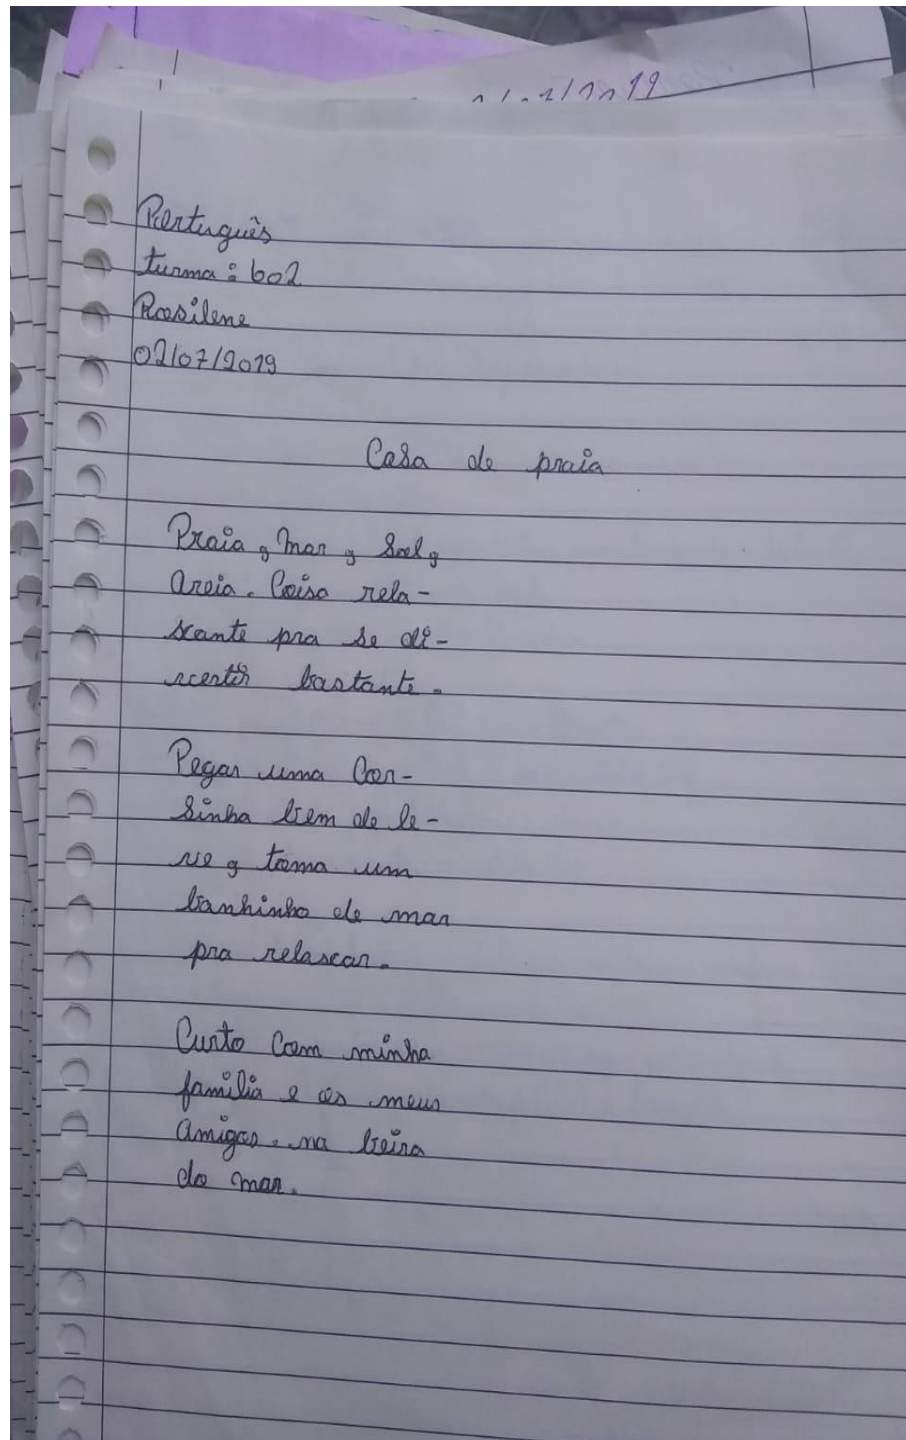 Português
turma: 602
Rosilene
02/07/2019
Casa de praia
Praia, mar, Sol,
areia. Coisa rela-
xante pra se di-
vertir bastante.
Pegar uma Cor-
Sinha bem de le-
ve, toma um
banhinho de mar
pra relaxar.
Curto Com minha
familia e os meus
amigos. na beira
do mar.